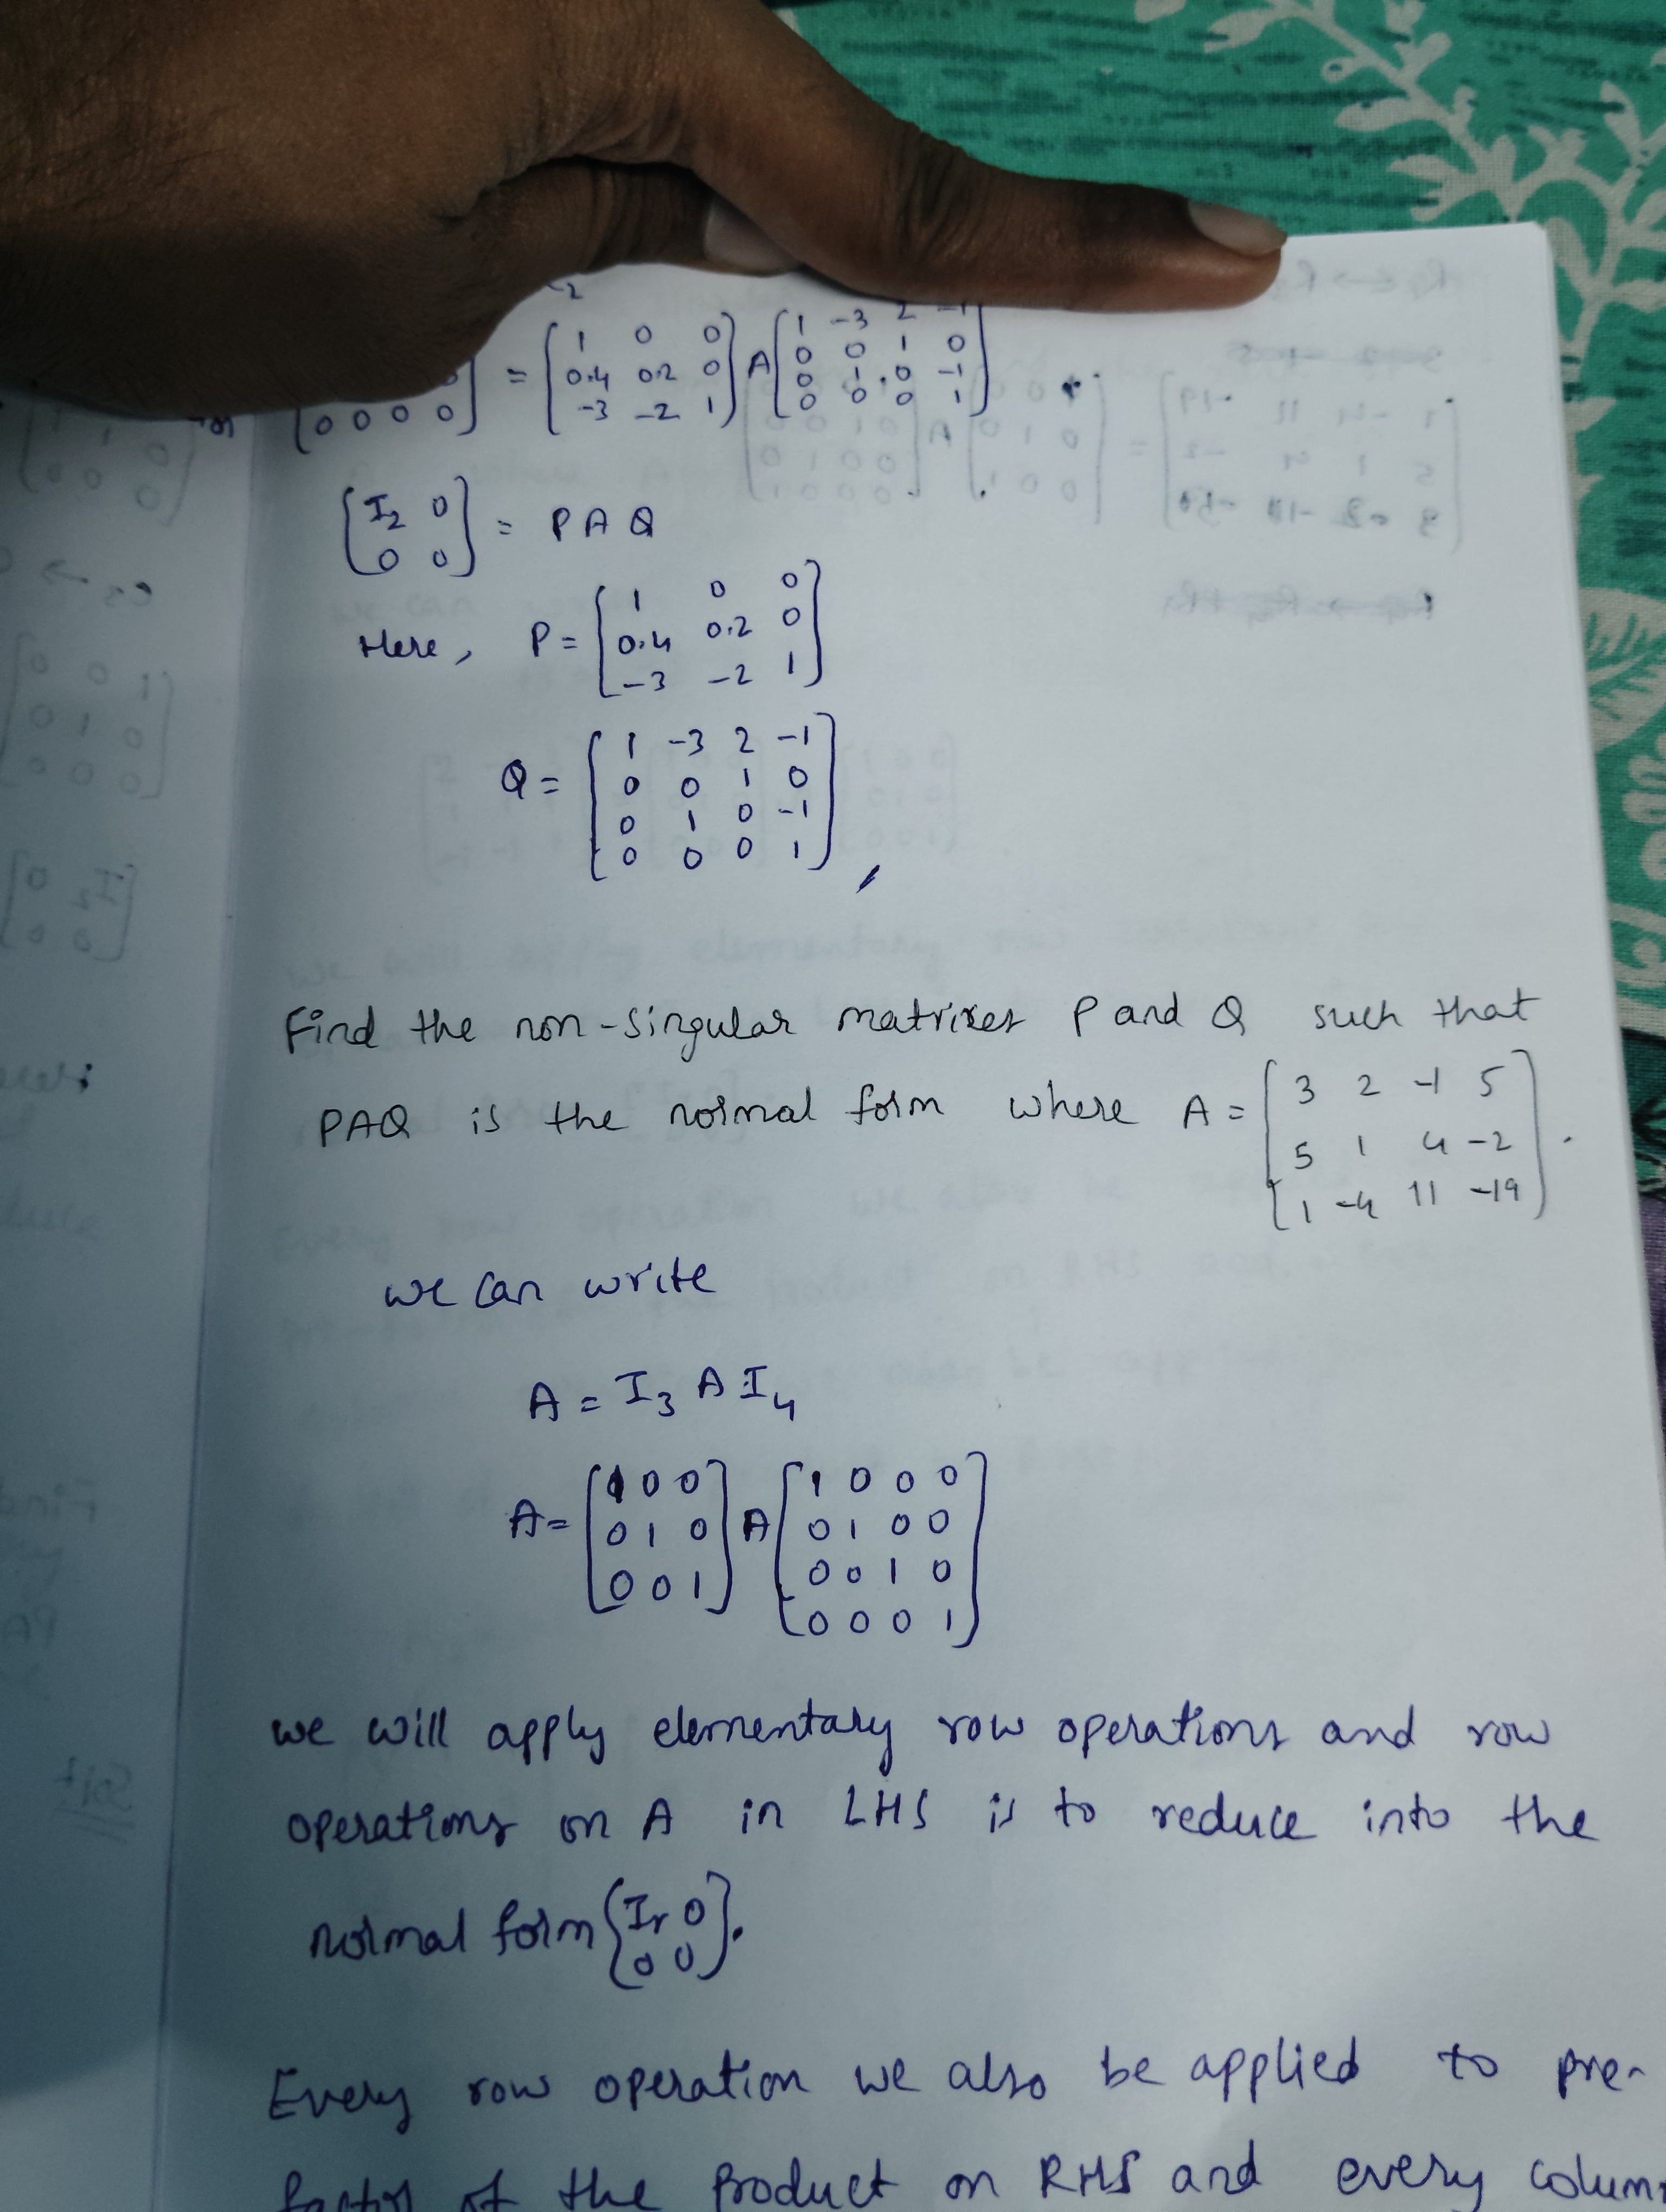 = [1 0 0
0.4 0.2 0
-3 -2 1] A [1 -3 2 -1
0 0 1 0
0 1 0 -1
0 0 0 1]
0 0 0 0]
[I₂ 0
0 0] = P A Q
Here, P = [1 0 0
0.4 0.2 0
-3 -2 1]
Q = [1 -3 2 -1
0 0 1 0
0 1 0 -1
0 0 0 1]
Find the non-singular matrixes P and Q such that
PAQ is the normal form where A = [3 2 -1 5
5 1 4 -2
1 -4 11 -19].
we can write
A = I₃ A I₄
A = [1 0 0
0 1 0
0 0 1] A [1 0 0 0
0 1 0 0
0 0 1 0
0 0 0 1]
we will apply elementary row operations and row
operations on A in LHS is to reduce into the
normal form [Ir 0
0 0].
Every row operation we also be applied to pre-
factor of the product on RHS and every colum